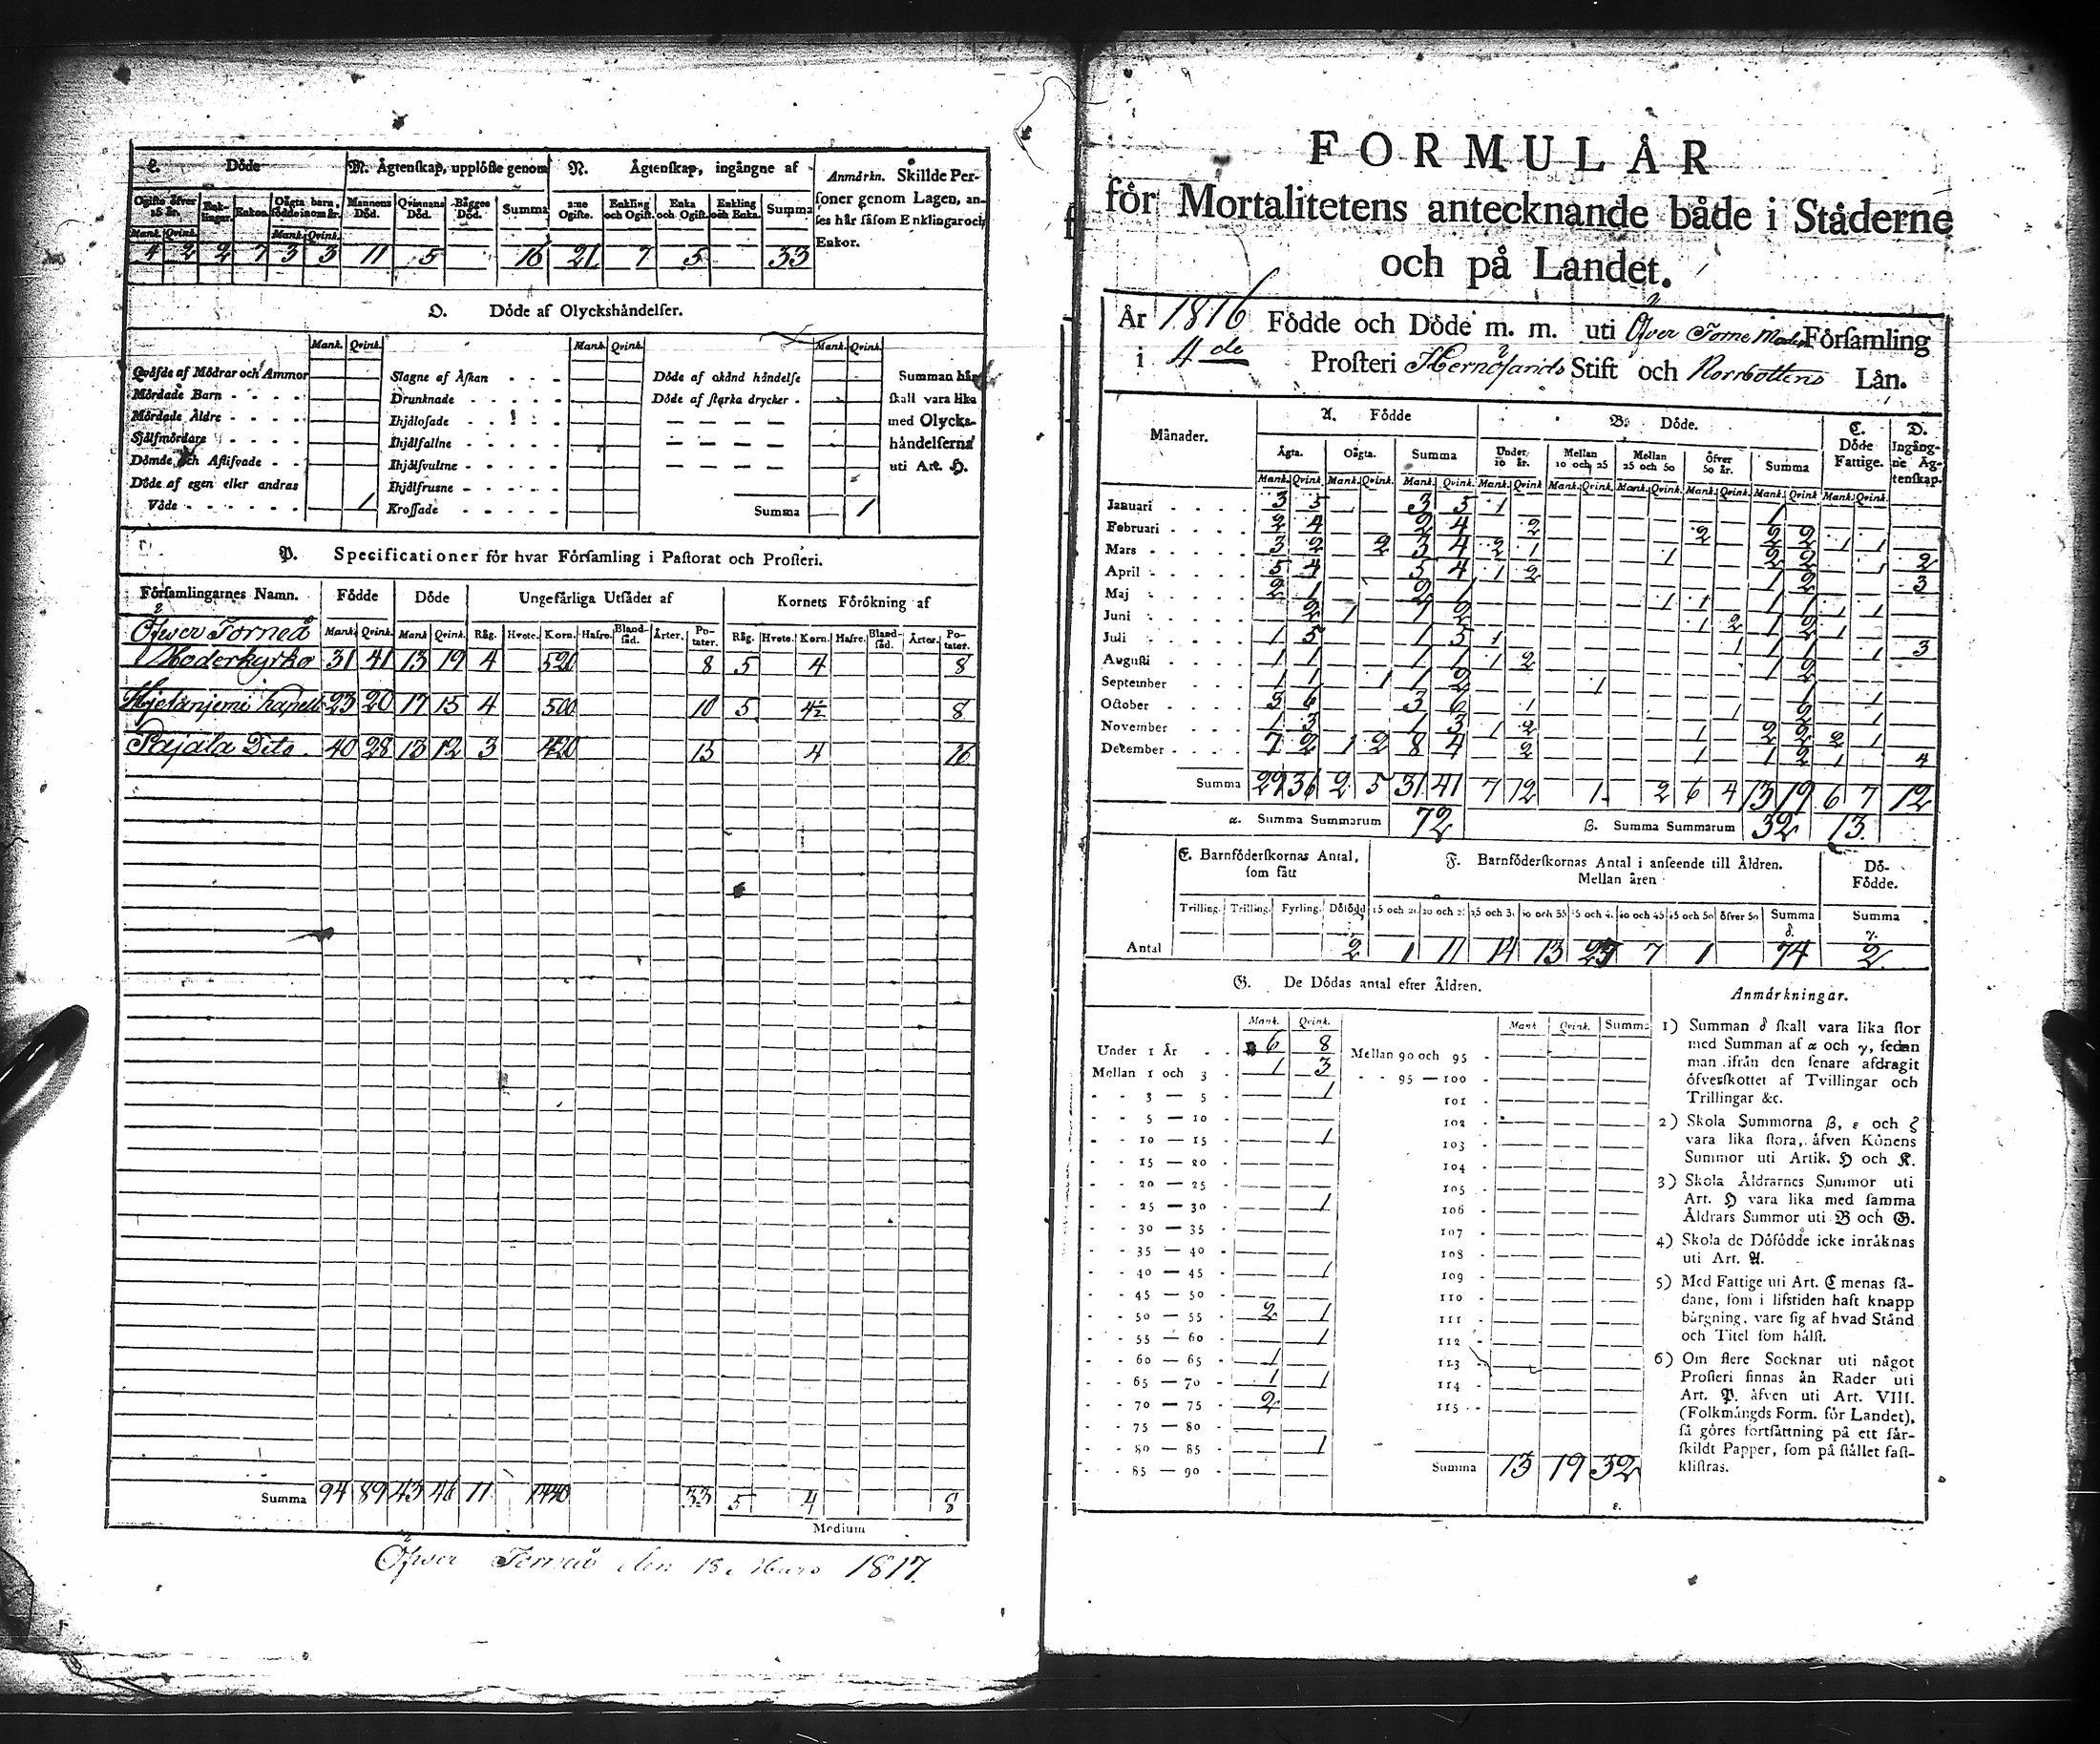 L. Döde
M. Ägtenskap, upplöste genom
N. Ägtenskap, ingångne af
Anmärkn. Skillde Personer
soner genom Lagen, anses
ses här såsom Enklingar och
Enkor.
Ogifte öfver 15 år. Enklingar. Enkor. Oägta barn, födde inom år. Mannens Död. Qvinnans Död. Bägges Död. Summa ene Ogifte. Enkling och Ogift. Enka och Ogift. Enkling och Enka. Summa
Mank. Qvink. Mank. Qvink.
4 2 2 7 3 3 11 5 16 21 7 5 33
O. Döde af Olyckshändelser.
Mank. Qvink. Mank. Qvink. Mank. Qvink.
Qväfde af Mödrar och Ammor Slagne af Åskan Döde af okänd händelse Summan här
Mördade Barn Drunknade Döde af starka drycker skall vara lika
Mördade Äldre Ihjälosade med Olycks-
Sjelfmördare Ihjälfallne händelserna
Dömde och Aflifvade Ihjälsvultne uti Art. H.
Döde af egen eller andras Ihjälfrusne
Våde 1 Krossade Summa 1
P. Specificationer för hvar Församling i Pastorat och Prosteri.
Församlingarnes Namn. Födde Döde Ungefärliga Utsädet af Kornets Förökning af
Öfwer Torneå Mank. Qvink. Mank. Qvink. Råg. Hvete. Korn. Hafre. Bland-säd. Ärter. Po-tater. Råg. Hvete. Korn. Hafre. Bland-säd. Ärter. Po-tater.
Moderkyrka 31 41 13 19 4 520 8 5 4 8
Hjetanjemi Kapell 23 20 17 15 4 500 10 5 4½ 8
Pajala Dito. 40 28 13 12 3 420 15 4 16
Summa 94 89 43 46 11 1440 33 5 4 8
Medium
Öfwer Torneå den 13 Mars 1817.
FORMULÄR
för Mortalitetens antecknande både i Städerne
och på Landet.
År 1816 Födde och Döde m. m. uti Öfver Torne Moder Församling
i 4de Prosteri Hernösands Stift och Norrbottens Län.
Månader. A. Födde B. Döde. C. Döde Fattige. D. Ingång-ne Äg-tenskap.
Ägta. Oägta. Summa Under 10 år. Mellan 10 och 25 Mellan 25 och 50 Öfver 50 år. Summa
Mank. Qvink. Mank. Qvink. Mank. Qvink. Mank. Qvink. Mank. Qvink. Mank. Qvink. Mank. Qvink. Mank. Qvink. Mank. Qvink.
Januari 3 5 3 5 1 1
Februari 2 4 2 4 2 2 2 2 1 1
Mars 3 2 2 3 4 2 1 1 2 2 1 2
April 5 4 5 4 1 2 1 2 3
Maj 2 1 2 1 1 1 1 1 1 1
Juni 2 1 1 2 1 2 1 2 1
Juli 1 5 1 5 1 1 1 1 1 3
Augusti 1 1 1 1 1 2 1 2
September 1 1 1 1 2 1 1 1
October 3 6 3 6 1 1 2 1
November 1 3 1 3 1 2 1 2 2 2 1
December 7 2 1 2 8 4 2 1 1 2 1 4
Summa 29 36 2 5 31 41 7 12 1 2 6 4 13 19 6 7 12
α. Summa Summarum 72 β. Summa Summarum 32 13
E. Barnföderskornas Antal, som fått
F. Barnföderskornas Antal i anseende till Åldren.
Mellan åren
Dö-Födde.
Trilling. Trilling. Fyrling. Dödfödd 15 och 20 20 och 25 25 och 30 30 och 35 35 och 40 40 och 45 45 och 50 öfver 50 Summa δ. Summa γ.
Antal 2 1 11 14 13 27 7 1 74 2
G. De Dödas antal efter Åldren.
Mank. Qvink. Mank. Qvink. Summa
Under 1 År 6 8 Mellan 90 och 95
Mellan 1 och 3 1 3 95 — 100
3 — 5 1 101
5 — 10 102
10 — 15 1 103
15 — 20 104
20 — 25 105
25 — 30 1 106
30 — 35 107
35 — 40 108
40 — 45 1 109
45 — 50 110
50 — 55 2 1 111
55 — 60 1 112
60 — 65 1 113
65 — 70 1 1 114
70 — 75 2 115
75 — 80
80 — 85 1
85 — 90 Summa 13 19 32
ε.
Anmärkningar.
1) Summan δ skall vara lika stor
med Summan af α och γ, sedan
man ifrån den senare afdragit
öfverskottet af Tvillingar och
Trillingar &c.
2) Skola Summorna β, ε och ζ
vara lika stora, äfven Könens
Summor uti Artik. H och K.
3) Skola Åldrarnes Summor uti
Art. H vara lika med samma
Åldrars Summor uti B och G.
4) Skola de Döfödde icke inräknas
uti Art. A.
5) Med Fattige uti Art. C menas så-
dane, som i lifstiden haft knapp
bärgning, vare sig af hvad Stånd
och Titel som hälst.
6) Om flere Socknar uti något
Prosteri finnas än Rader uti
Art. P. äfven uti Art. VIII.
(Folkmängds Form. för Landet),
så göres fortsättning på ett sär-
skildt Papper, som på stället fast-
klistras.